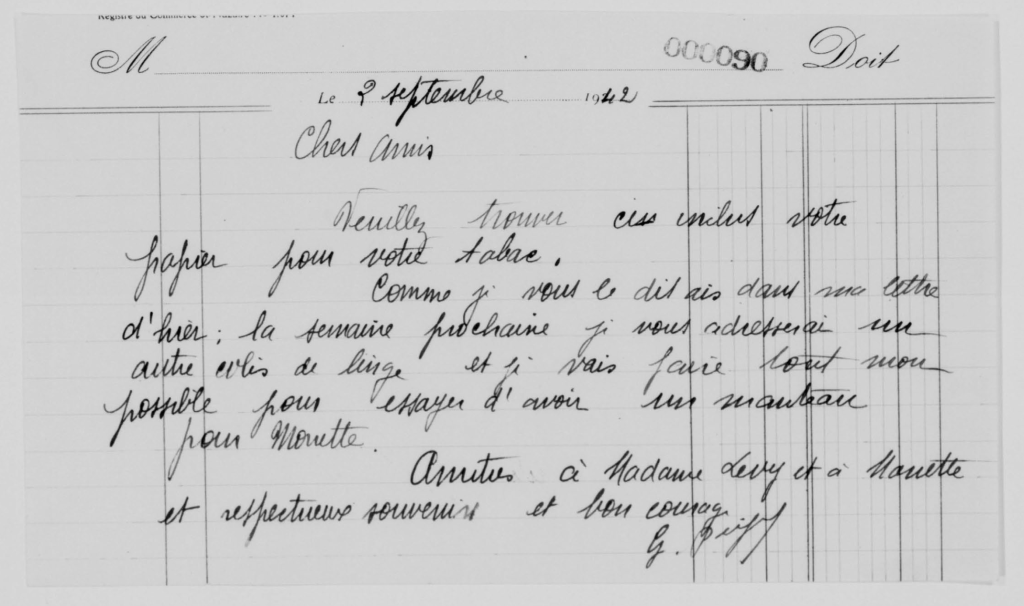 Registre du Commerce St Nazaire
M 000090 Doit
Le 2 septembre 1942
Chers Amis
Veuillez trouver ci inclus votre
papier pour votre tabac.
Comme je vous le disais dans ma lettre
d'hier ; la semaine prochaine je vous adresserai un
autre colis de linge et je vais faire tout mon
possible pour essayer d'avoir un manteau
pour Monette.
Amitiés à Madame Levy et à Monette
et respectueux souvenirs et bon courage
G.